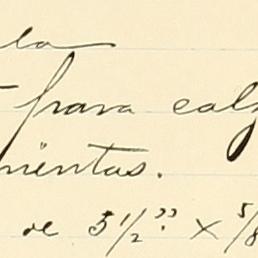 la
para calz
mientas.
de 5 1/2" x 5/8